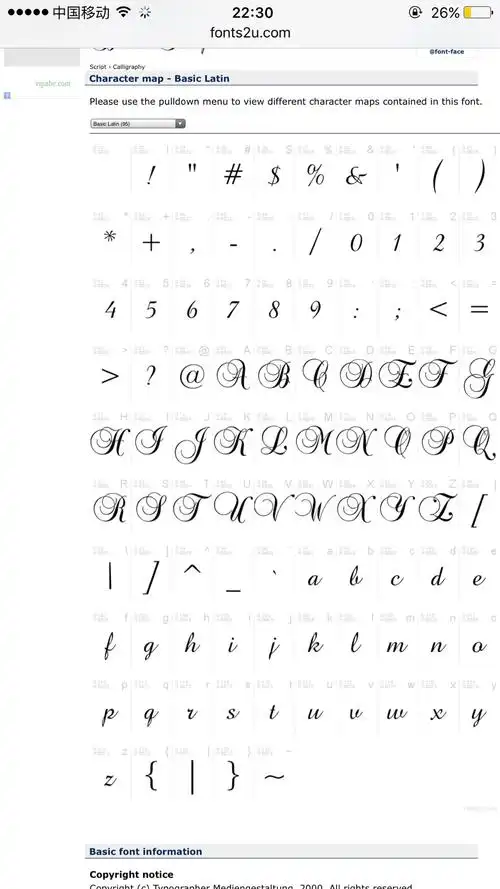 中国移动 22:30 26%
fonts2u.com
@font-face
Script › Calligraphy
Character map - Basic Latin
Please use the pulldown menu to view different character maps contained in this font.
Basic Latin (95)
! " # $ % & ' ( )
* + , - . / 0 1 2 3
4 5 6 7 8 9 : ; < =
> ? @ A B C D E F G
H I J K L M N O P Q
R S T U V W X Y Z [
\ ] ^ _ ` a b c d e
f g h i j k l m n o
p q r s t u v w x y
z { | } ~
Basic font information
Copyright notice
Copyright (c) Typographer Mediengestaltung, 2000. All rights reserved.